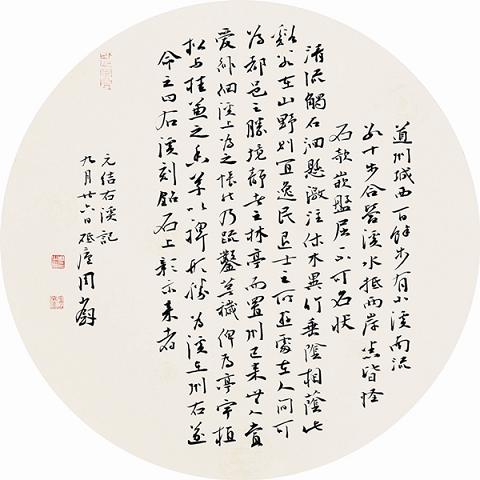 道州城西百餘步有小溪南流
數十步合營溪水抵兩岸悉皆怪
石欹嵌盤屈不可名狀
清流觸石洄懸激注佳木異竹垂陰相蔭此
谿若在山野則宜逸民退士之所遊處在人間可
為都邑之勝境靜者之林亭而置州已來無人賞
愛徘徊溪上為之悵然乃疏鑿蕪穢俾為亭宇植
松與桂兼之香草以裨形勝為溪在州右遂
命之曰右溪刻銘石上彰示來者
元結右溪記
九月廿六日砥周